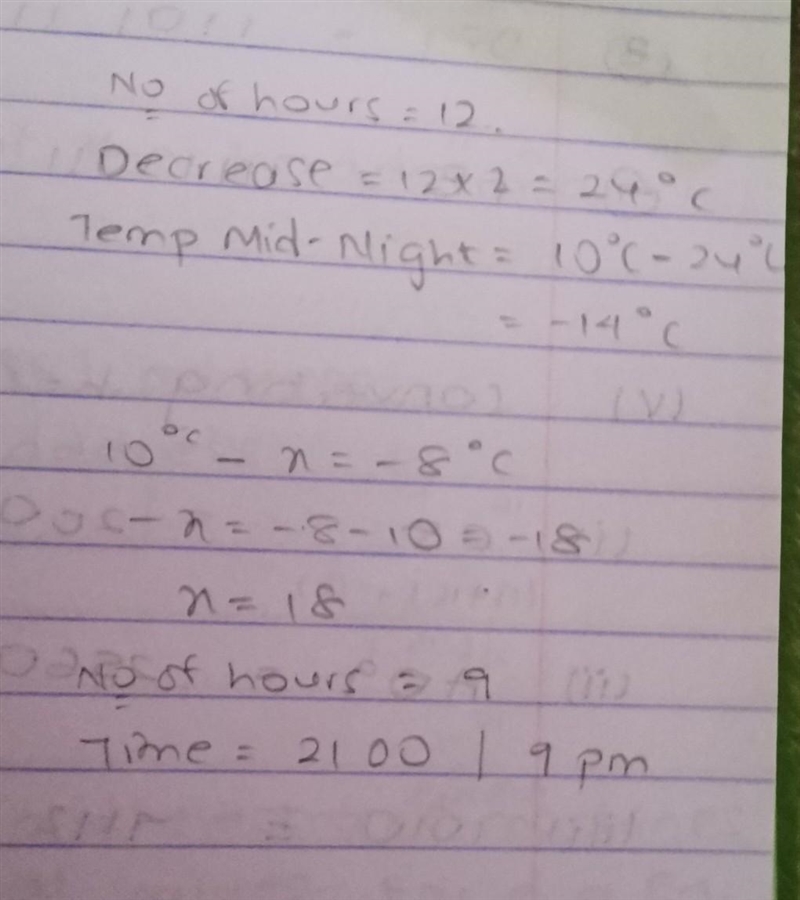 No of hours = 12.
Decrease = 12 x 2 = 24°C
Temp Mid-Night = 10°C - 24°C
= -14°C
10°C - x = -8°C
- x = -8 - 10 = -18
x = 18
No of hours = 9
Time = 2100 | 9 pm